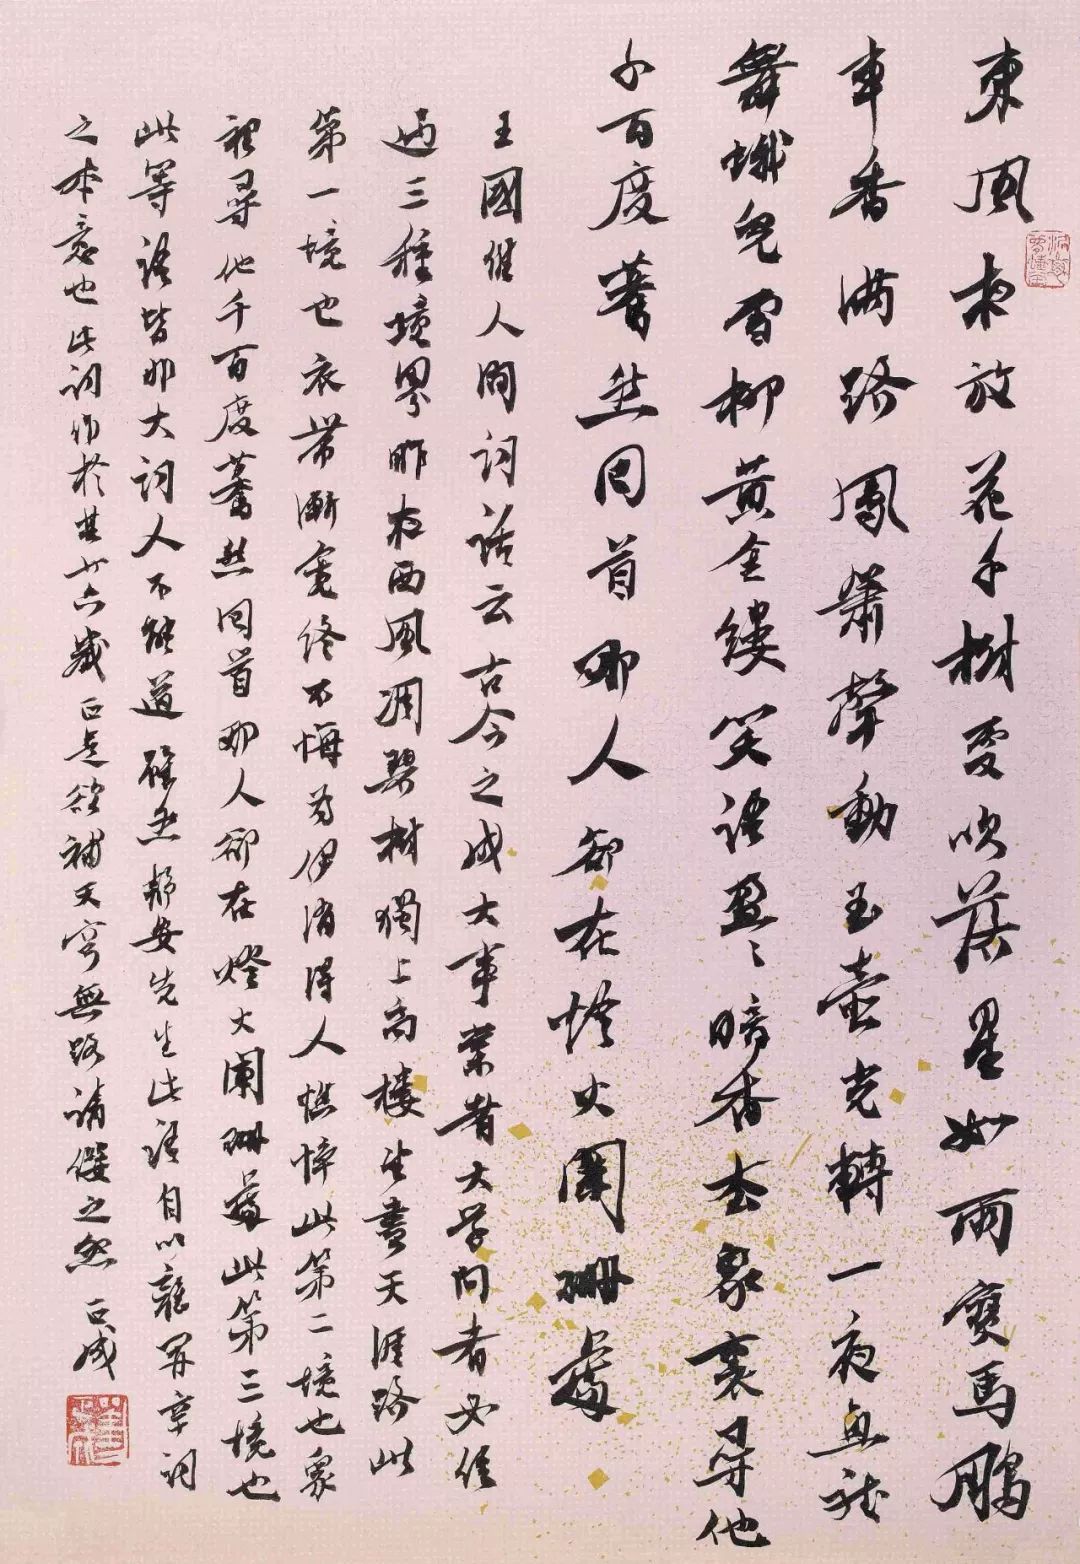 東風夜放花千樹更吹落星如雨寶馬鵰
車香滿路鳳簫聲動玉壺光轉一夜魚龍
舞蛾兒雪柳黃金縷笑語盈〻暗香去衆裏尋他
千百度驀然回首那人卻在燈火闌珊處
王國維人間詞話云古今之成大事業者大學問者必經
過三種境界昨夜西風凋碧樹獨上高樓望盡天涯路此
第一境也衣帶漸寬終不悔為伊消得人憔悴此第二境也衆
裡尋他千百度驀然回首那人卻在燈火闌珊處此第三境也
此等語皆非大詞人不能道雖然靜安先生此語自以離開辛詞
之本意也此詞作於其廿六歲正是欲補天穹無路請纓之